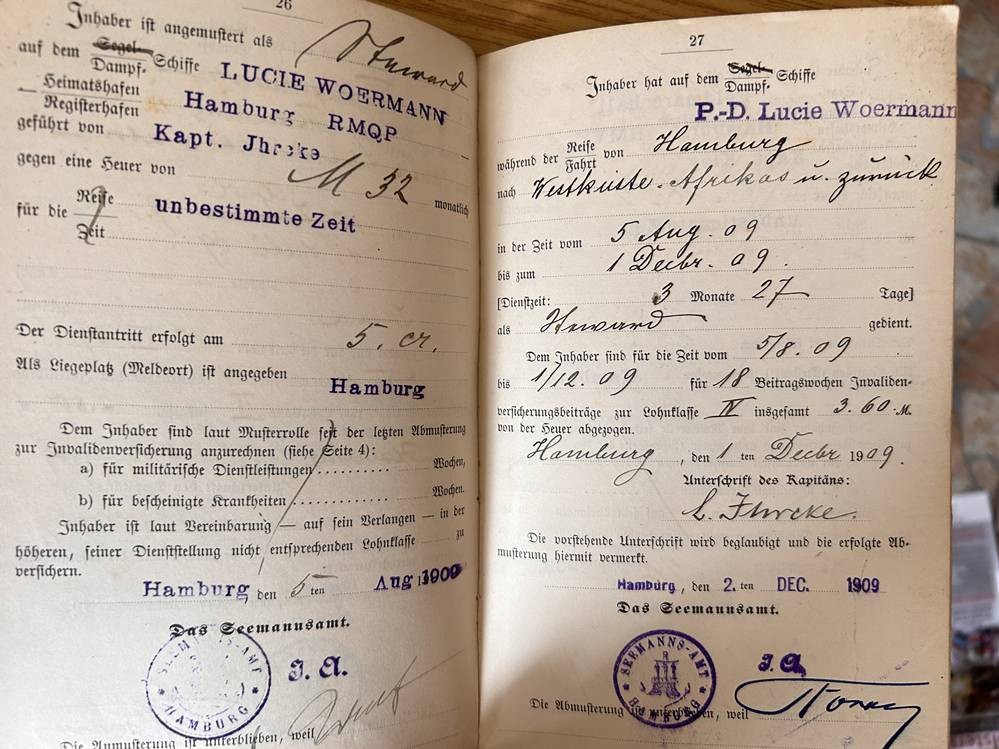 26
Inhaber ist angemustert als Steward
auf dem Segel- Dampf- Schiffe LUCIE WOERMANN
Heimatshafen Registerhafen Hamburg RMQP
geführt von Kapt. Jhrcke
gegen eine Heuer von M 32 monatlich
für die Reise Zeit unbestimmte Zeit
Der Dienstantritt erfolgt am 5. cr.
Als Liegeplatz (Meldeort) ist angegeben
Hamburg
Dem Inhaber sind laut Musterrolle seit der letzten Abmusterung
zur Invalidenversicherung anzurechnen (siehe Seite 4):
a) für militärische Dienstleistungen .......... Wochen,
b) für bescheinigte Krankheiten .......... Wochen.
Inhaber ist laut Vereinbarung — auf sein Verlangen — in der
höheren, seiner Dienststellung nicht entsprechenden Lohnklasse zu
versichern.
Hamburg, den 5 ten Aug 1909
Das Seemannsamt.
SEEMANNS-AMT HAMBURG
J. A.
Die Anmusterung ist unterblieben, weil
27
Inhaber hat auf dem Segel- Dampf- Schiffe
P.-D. Lucie Woermann
während der Reise Fahrt von Hamburg
nach Westküste Afrikas u. zurück
in der Zeit vom 5 Aug. 09
bis zum 1 Decbr. 09.
[Dienstzeit: 3 Monate 27 Tage]
als Steward gedient.
Dem Inhaber sind für die Zeit vom 5/8. 09
bis 1/12. 09 für 18 Beitragswochen Invaliden-
versicherungsbeiträge zur Lohnklasse IV insgesamt 3.60 M.
von der Heuer abgezogen.
Hamburg, den 1 ten Decbr 1909.
Unterschrift des Kapitäns:
C. Jhrcke.
Die vorstehende Unterschrift wird beglaubigt und die erfolgte Ab-
musterung hiermit vermerkt.
Hamburg, den 2. ten DEC. 1909
Das Seemannsamt.
SEEMANNS-AMT HAMBURG
J. A.
Die Abmusterung ist unterblieben, weil